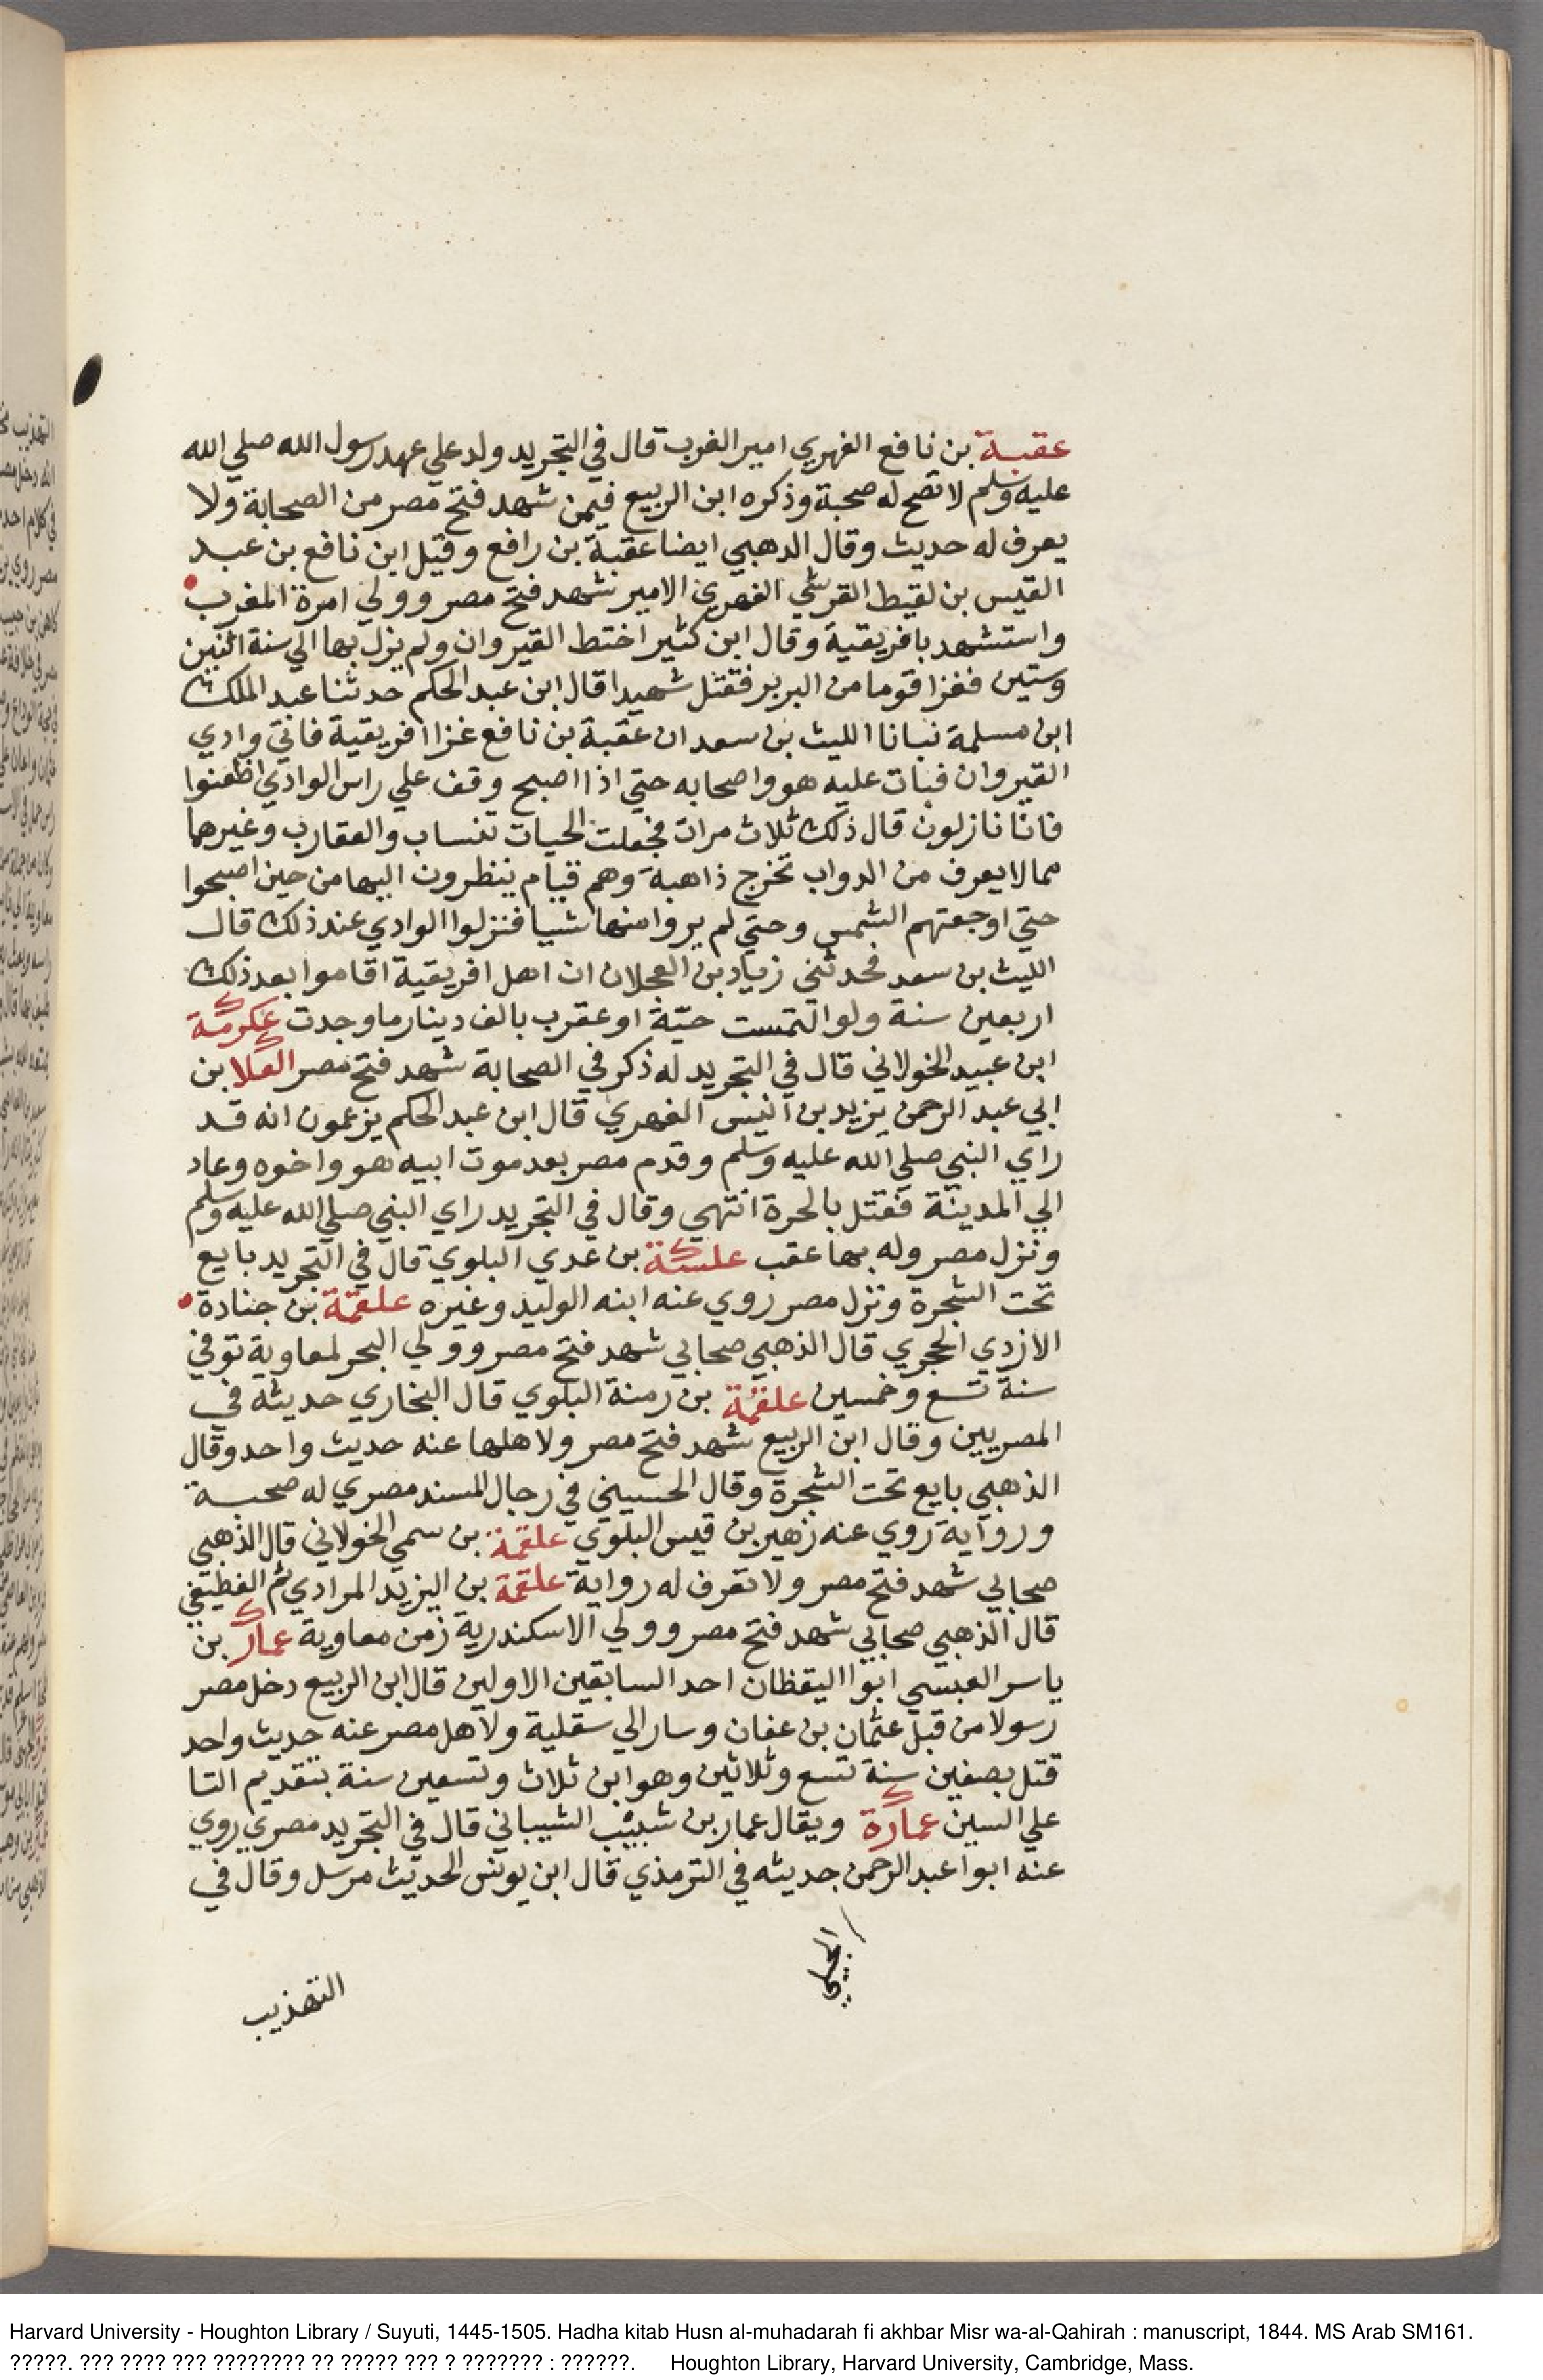 عقبة بن نافع الفهري امير الغرب قال في التجريد ولد علي عهد رسول الله صلي الله
عليه وسلم لا تصح له صحبة وذكره ابن الربيع فيمن شهد فتح مصر من الصحابة ولا
يعرف له حديث وقال الدهبي ايضا عقبة بن رافع وقيل ابن نافع بن عبد
القيس بن لقيط القرشي الفهري الامير شهد فتح مصر وولي امرة المغرب
واستشهد بافريقية وقال ابن كثير اختط القيروان ولم يزل بها الي سنة اثنين
وستين فغزا قوما من البربر فقتل شهيدا قال ابن عبد الحكم حدثنا عبد الملك
ابن مسلمة نبانا الليث بن سعد ان عقبة بن نافع غزا افريقية فاتي وادي
القيروان فبات عليه هو واصحابه حتي اذا اصبح وقف علي راس الوادي اظعنوا
فانا نازلون قال ذلك ثلاث مرات فجعلت الحيات تنساب والعقارب وغيرهما
مما لا يعرف من الدواب تخرج ذاهبة وهم قيام ينظرون اليها من حين اصبحوا
حتي اوجعتهم الشمس وحتي لم يروا منها شيا فنزلوا الوادي عند ذلك قال
الليث بن سعد فحدثني زياد بن العجلان ان اهل افريقية اقاموا بعد ذلك
اربعين سنة ولو التمست حية او عقرب بالف دينار ما وجدت عكرمة
ابن عبيد الخولاني قال في التجريد له ذكر في الصحابة شهد فتح مصر العلا بن
ابي عبد الرحمن يزيد بن انيس الفهري قال ابن عبد الحكم يزعمون انه قد
راي النبي صلي الله عليه وسلم وقدم مصر بعد موت ابيه هو واخوه وعاد
الي المدينة فقتل بالحرة انتهي وقال في التجريد راي النبي صلي الله عليه وسلم
ونزل مصر وله بها عقب علسة بن عدي البلوي قال في التجريد بايع
تحت الشجرة ونزل مصر روي عنه ابنه الوليد وغيره علقمة بن جنادة
الازدي الحجري قال الذهبي صحابي شهد فتح مصر وولي البحر لمعاوية توفي
سنة تسع وخمسين علقمة بن رمنة البلوي قال البخاري حديثه في
المصريين وقال ابن الربيع شهد فتح مصر ولاهلها عنه حديث واحد وقال
الذهبي بايع تحت الشجرة وقال الحسيني في رجال المسند مصري له صحبة
ورواية روي عنه زهير بن قيس البلوي علقمة بن سمي الخولاني قال الذهبي
صحابي شهد فتح مصر ولا تعرف له رواية علقمة بن اليزيد المرادي ثم الغطيفي
قال الذهبي صحابي شهد فتح مصر وولي الاسكندرية زمن معاوية عمار بن
ياسر العبسي ابوا اليقظان احد السابقين الاولين قال ابن الربيع دخل مصر
رسولا من قبل عثمان بن عفان وسار الي سقلية ولاهل مصر عنه حديث واحد
قتل بصفين سنة تسع وثلاثين وهو ابن ثلاث وتسعين سنة بتقديم التا
علي السين عمارة ويقال عمار بن شبيب الشيباني قال في التجريد مصري روي
عنه ابوا عبد الرحمن حديثه في الترمذي قال ابن يونس الحديث مرسل وقال في
التهذيب
Harvard University - Houghton Library / Suyuti, 1445-1505. Hadha kitab Husn al-muhadarah fi akhbar Misr wa-al-Qahirah : manuscript, 1844. MS Arab SM161.
?????. ??? ???? ??? ???????? ?? ????? ??? ? ??????? : ??????. Houghton Library, Harvard University, Cambridge, Mass.